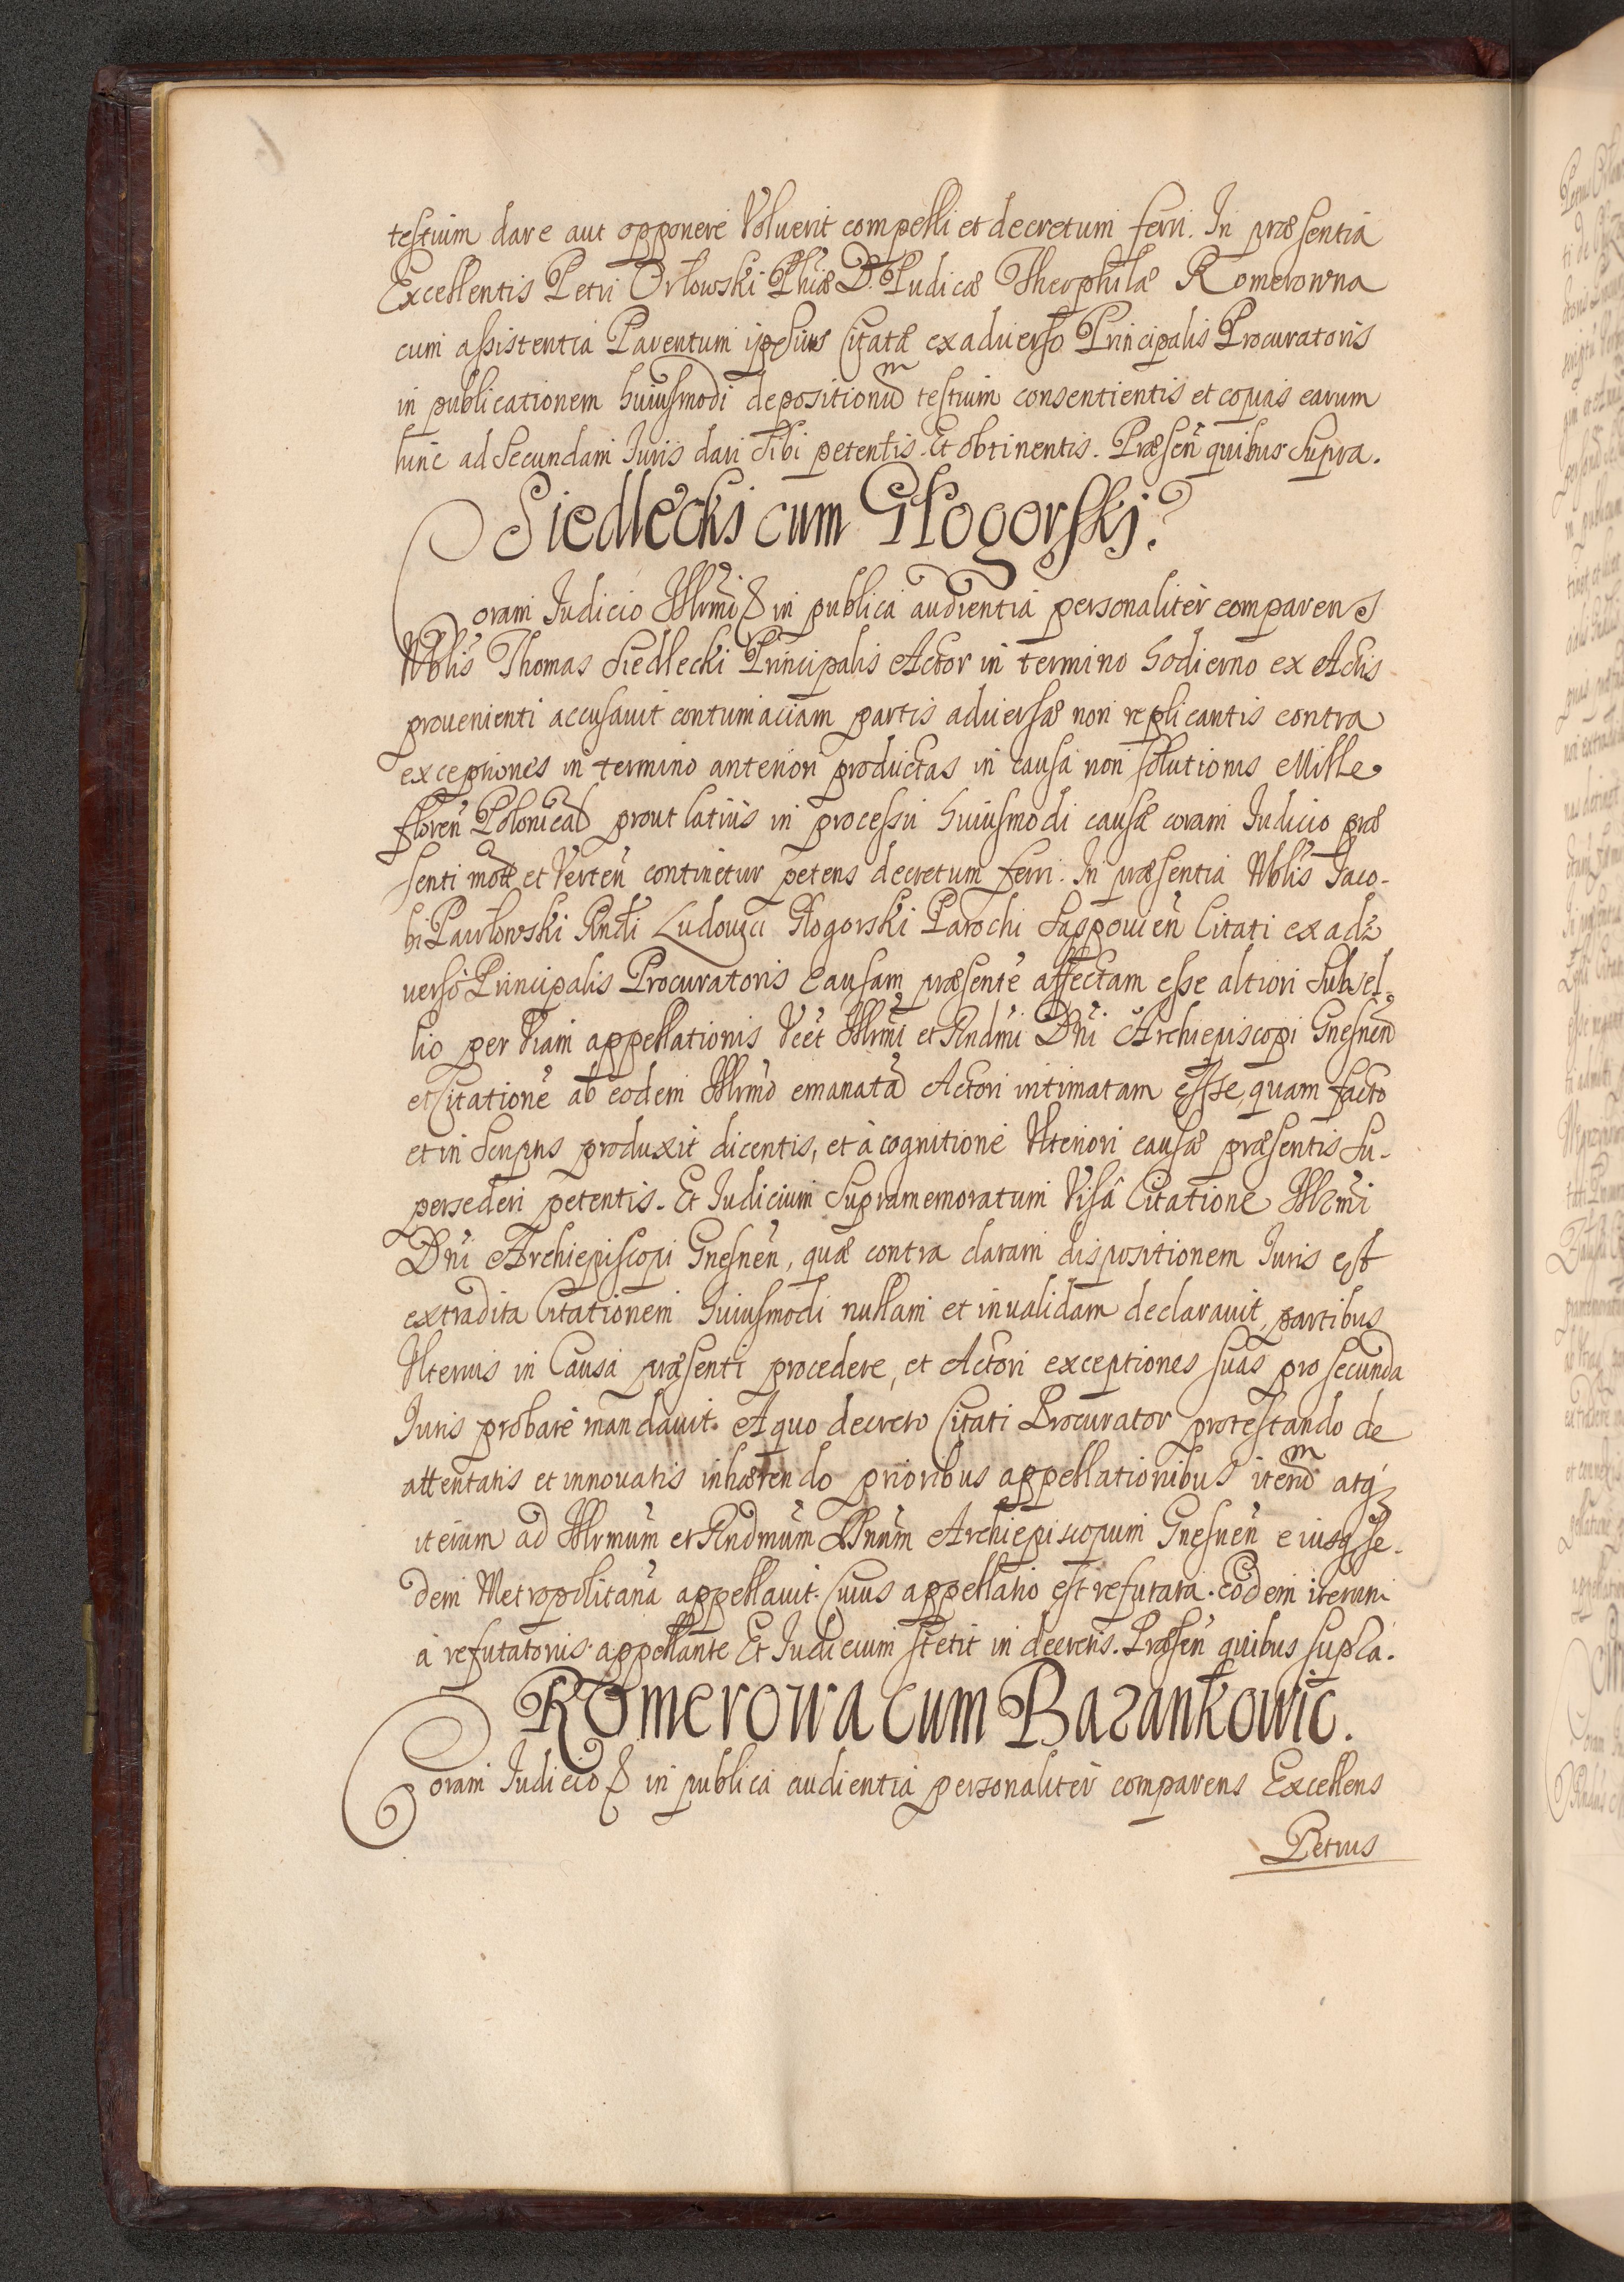 testium dare aut opponere Voluerit compelli et decretum ferri. In præsentia
Excellentis Petri Orłowski Phiæ D. Pudicæ Theophilæ Romerowna
cum assistentia Parentum ipsius Citatæ ex aduerso Principalis Procuratoris
in publicationem huiusmodi depositionũm testium consentientis et copias earum
hinc ad Secundam Iuris dari Sibi petentis. Et obtinentis. Præsen̄ quibus Supra.
Siedlecki cum Głogorskj.
Coram Iudicio Illrmi & in publica audientia personaliter comparens
Nblis Thomas Siedlecki Principalis Actor in termino hodierno ex Actis
prouenienti accusauit contumaciam partis aduersæ non replicantis contra
exceptiones in termino anteriori productas in causa non solutionis Mille
floren̄ Polonical prout latius in processu huiusmodi causæ coram Iudicio præ
senti motæ et Verten̄ continetur petens decretum ferri. In præsentia Nblis Iaco-
bi Pawłowski Rndi Ludouici Głogorski Parochi Saspouien̄ Citati ex ad-
uerso Principalis Procuratoris causam præsentē affectam esse altiori Subsel-
lio per Viam appellationis Vcet Illrmi et Rndmi Dni Archiepiscopi Gnesnen̄
et Citationē ab eodem Illrmo emanatā Actori intimatam esse, quam facto
et in Scriptis produxit dicentis, et à cognitione Vlteriori causæ præsentis Su-
persederi petentis. Et Iudicium Supramemoratum Visâ Citatione Illrmi
Dni Archiepiscopi Gnesnen̄, quæ contra claram dispositionem Iuris est
extradita Citationem huiusmodi nullam et inualidam declarauit, partibus
Vlterius in Causa præsenti procedere, et Actori exceptiones suas pro secunda
Iuris probare mandauit. A quo decreto Citati Procurator protestando de
attentatis et innouatis inhærendo prioribus appellationibus iterũm atq
iterum ad Illrmum et Rndmum Dnum Archiepiscopum Gnesnen̄ eiusq se-
dem Metropolitanā appellauit. Cuius appellatio est refutata. Eodem iterum
à refutatoriis appellante Et Iudicium stetit in decretis. Præsen̄ quibus supra.
Romerowa cum Bazankowic.
Coram Iudicio & in publica audientia personaliter comparens Excellens
Petrus